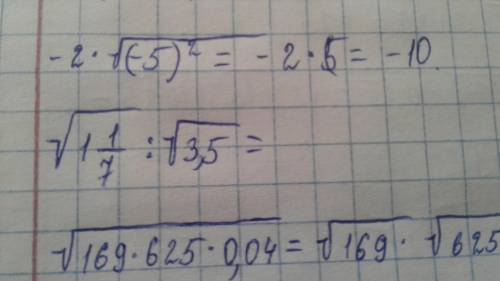 -2·√(-5)² = -2·5 = -10.
√1 1/7 : √3,5 =
√169·625·0,04 = √169 · √625